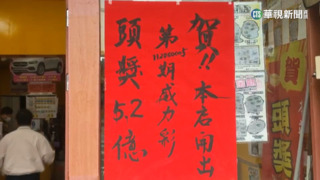 賀!!本店開出
第112000005期威力彩
頭獎5.2億
CTS 華視新聞
賀
頭獎